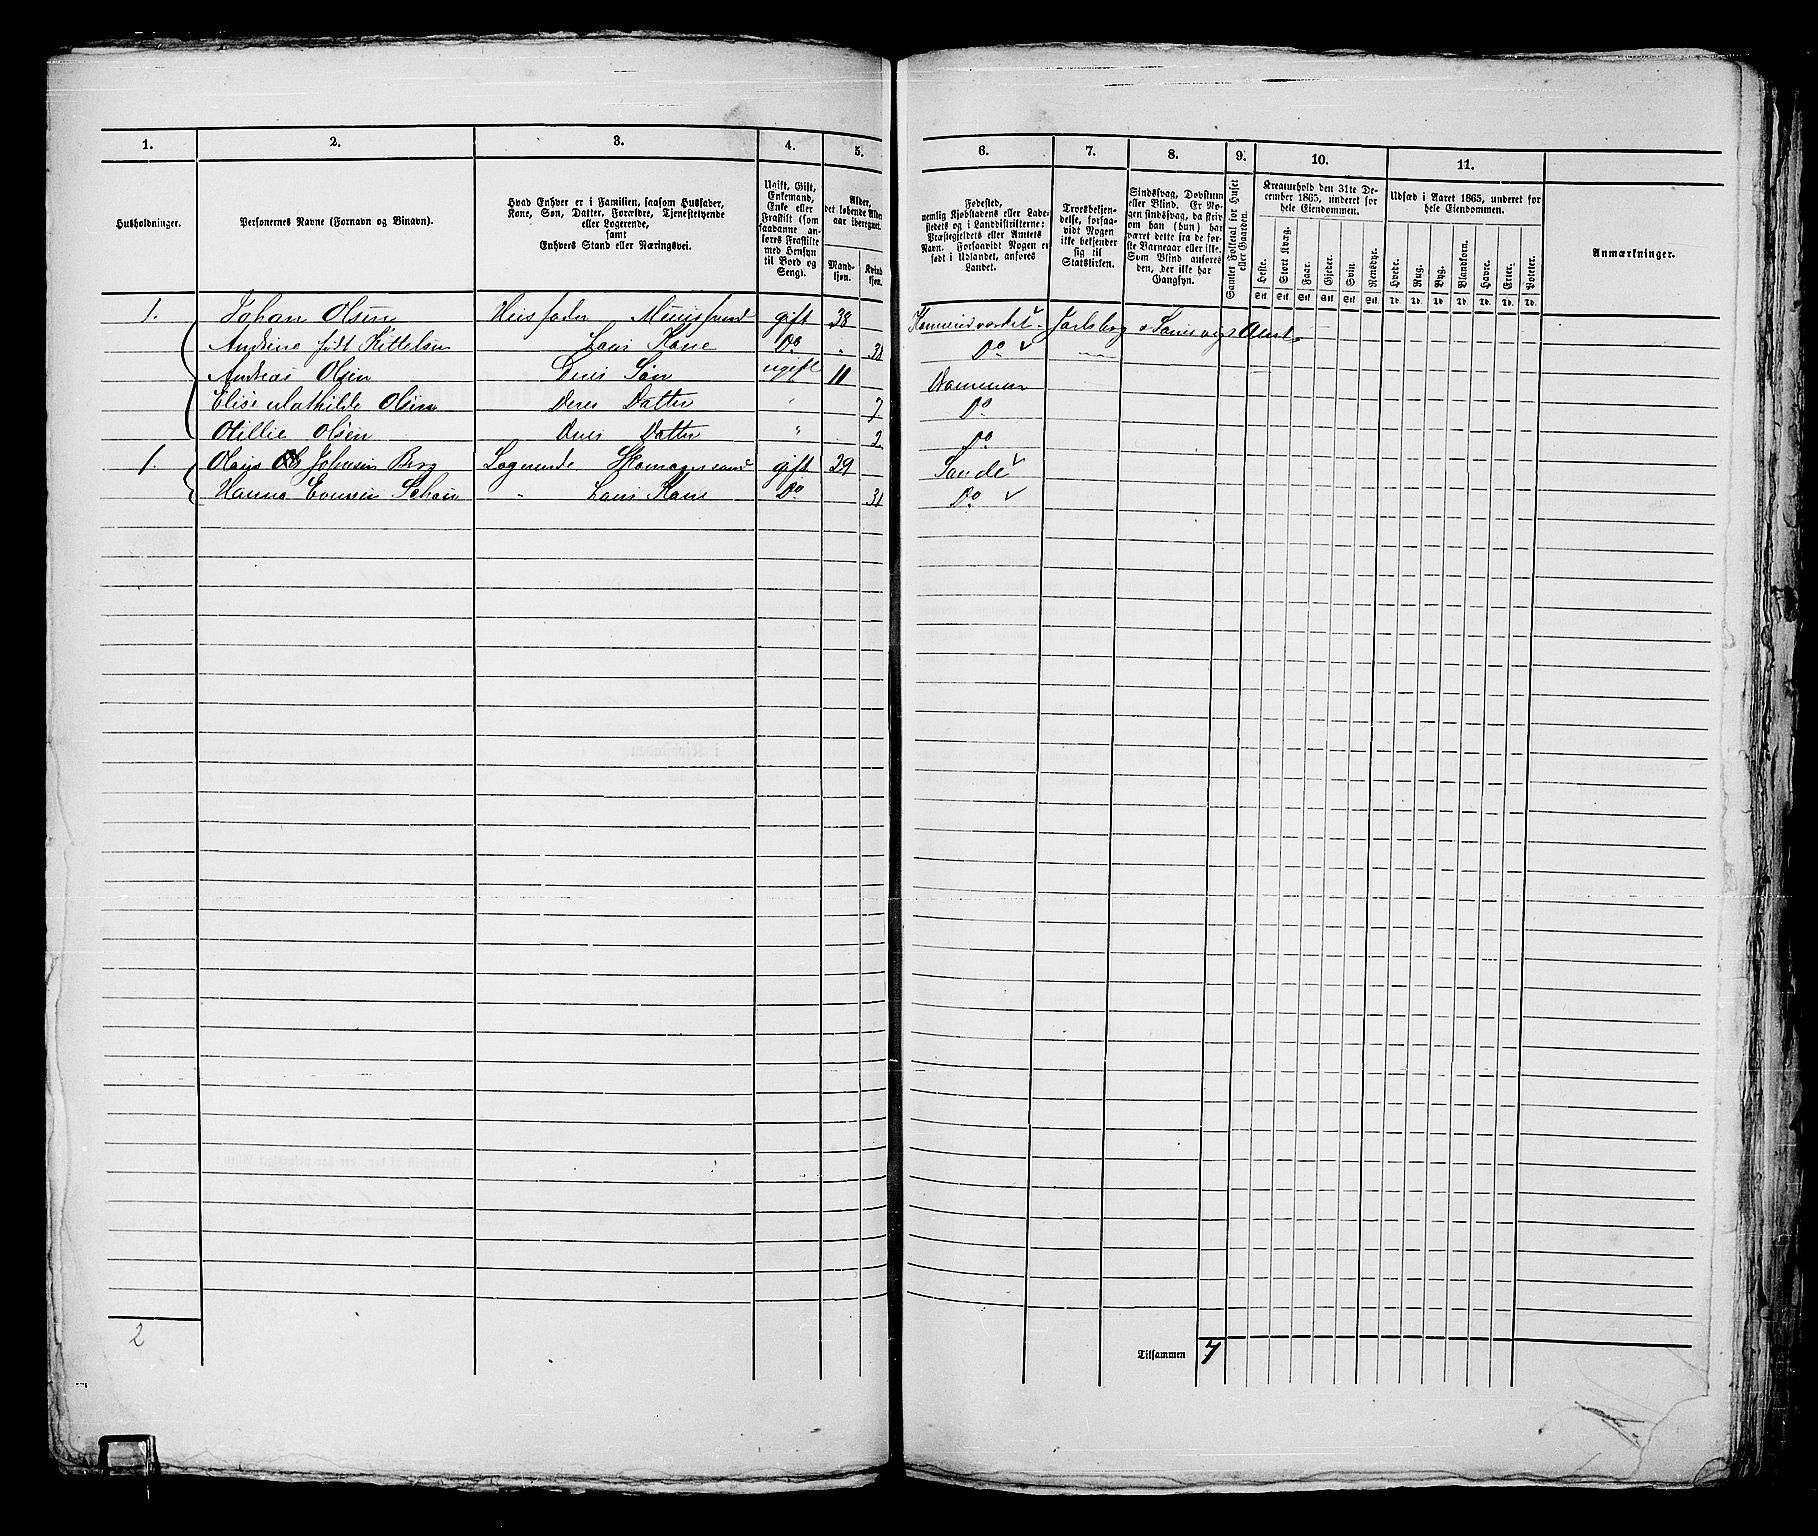 1. 2. 3. 4. 5. 6. 7. 8. 9. 10. 11.
Husholdninger.
Personernes Navne (Fornavn og Binavn).
Hvad Enhver er i Familien, saasom Husfader,
Kone, Søn, Datter, Forældre, Tjenestetyende
eller Logerende,
samt
Enhvers Stand eller Næringsvei.
Ugift, Gift,
Enkemand,
Enke eller
Fraskilt (som
saadanne an-
føres Fraskilte
med Hensyn
til Bord og
Seng).
Alder,
det løbende Alders-
aar iberegnet.
Mand-
kjøn.
Kvind
kjøn.
Fødested,
nemlig Kjøbstadens eller Lade-
stedets og i Landdistrikterne:
Præstegjeldets eller Amtets
Navn. Forsaavidt Nogen er
født i Udlandet, anføres
Landet.
Troesbekjen-
delse, forsaa-
vidt Nogen
ikke bekjender
sig til
Statskirken.
Sindssvag, Døvstum
eller Blind. Er No-
gen sindssvag, da skriv
om han (hun) har
været dette fra de før-
ste Barneaar eller ikke.
Som Blind anføres
den, der ikke har
Gangsyn.
Samlet Folketal for Huset
eller Gaarden.
Kreaturhold den 31te De-
cember 1865, underet for
hele Eiendommen.
Heste. Stort Kvæg. Faar. Gjeder. Svin. Rensdyr.
Stk. Stk. Stk. Stk. Stk. Stk.
Udsæd i Aaret 1865, underet for
hele Eiendommen.
Hvede. Rug. Byg. Blandkorn. Havre. Erter. Poteter.
Td. Td. Td. Td. Td. Td. Td.
Anmærkninger.
1. Johan Olsen Huusfader Muursvend gift 38 Jarlsberg Amt
Andrine født Kittelsen Hans Kone Do " 38 Do
Andreas Olsen Deres Søn ugift 11 Drammen
Elise Mathilde Olsen Deres Datter " 7 Do
Otillie Olsen Deres Datter " 2 Do
1. Olaus Johnsen Berg Logerende Skomagersvend gift 29 Sande
Hanna Evensen " Hans Kone Do 31 Do
2
Tilsammen 7